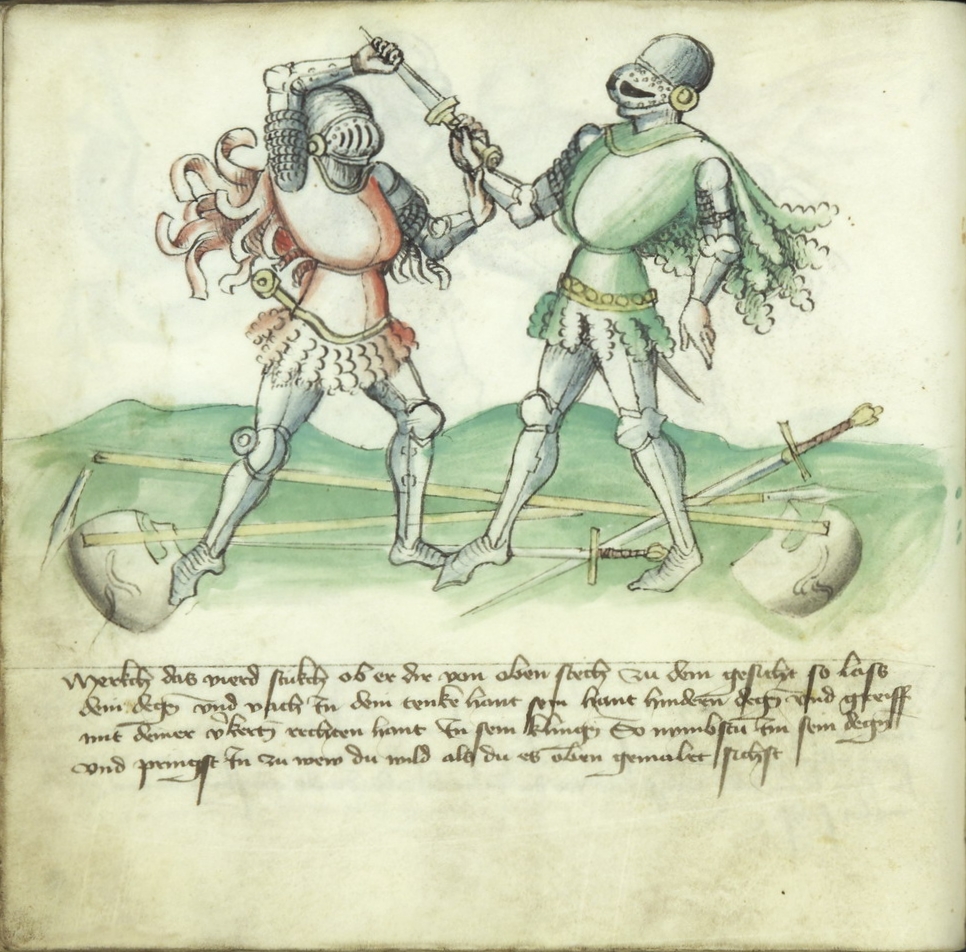 Merkch das vierd stukch ob er dir von oben stech zu dem gesicht so lass
dein degn vnd vach in dein tenke hant sein hant hindern degn vnd greiff
mit deiner v'kertn rechten hant in sein klingn So nymbstu im sein degn
vnd pringst in zu wew du wild als du es oben gemalet sichst